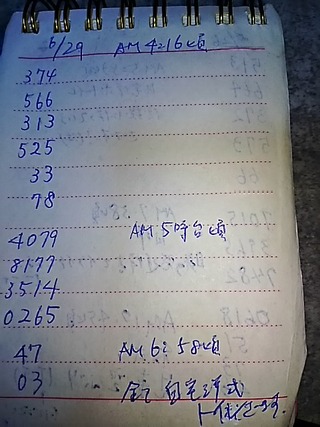 6/29 AM 4:16 頃
374
566
313
525
33
78
4079 AM 5時台頃
8177
3514
0265
47 AM 6:58頃
03 全て 自宅